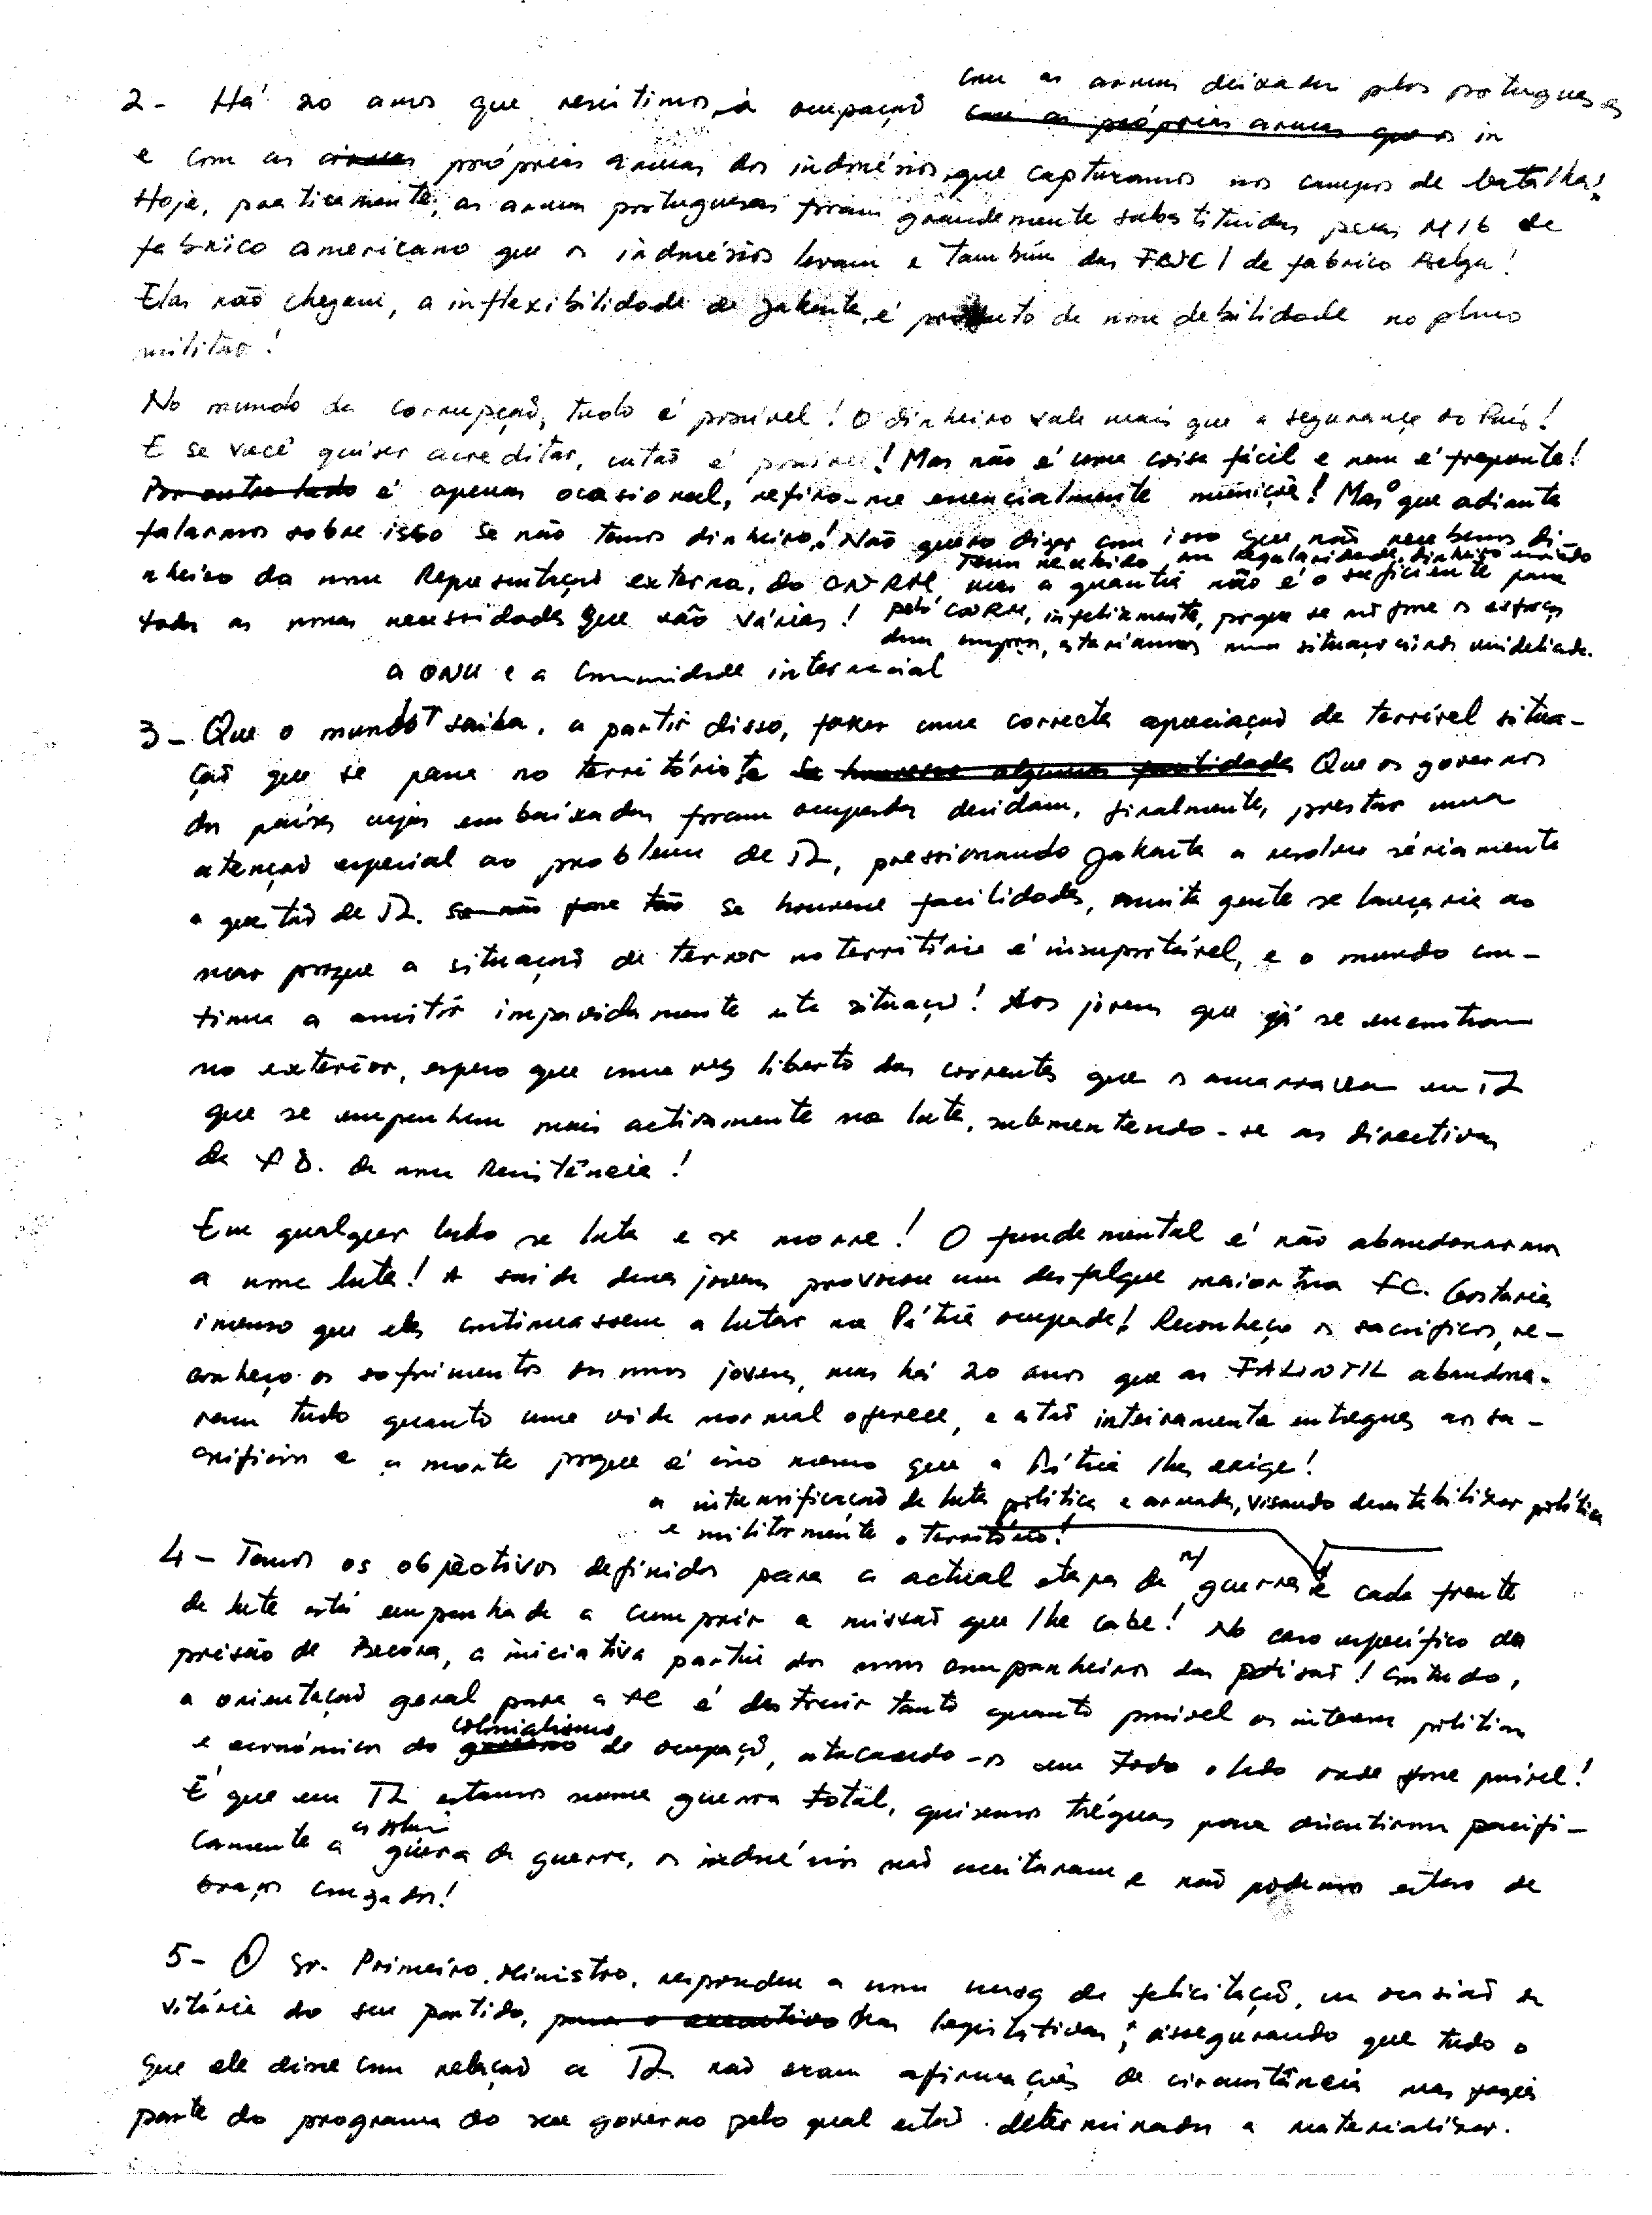 com as armas deixadas pelos portugueses
2- Há 20 anos que resistimos à ocupação com as próprias armas que os in
e com as armas próprias armas dos indonésios, que capturamos nos campos de batalha!
Hoje, praticamente, as armas portuguesas foram grandemente substituidas pelas M16 de
fabrico americano que os indonésios levam e também das FNC / de fabrico Belga!
Elas não chegam, a inflexibilidade de Jakarta, é produto de nossa debilidade no plano
militar!
No mundo da corrupção, tudo é possível! O dinheiro vale mais que a segurança do País!
E se você quiser acreditar, então é possível! Mas não é uma coisa fácil e nem é frequente!
Por outro lado é apenas ocasional, refiro-me essencialmente munições! Mas o que adianta
falarmos sobre isso se não temos dinheiro! Não quero dizer com isso que não recebemos di-
Temos recebido, com regularidade, dinheiro enviado
nheiro da nossa Representação externa, do CNRM mas a quantia não é o suficiente para
todas as nossas necessidades que são várias! pelo CNRM, infelizmente, porque se não fosse os esforços
dessa, estaríamos numa situação ainda mais delicada.
a ONU e a Comunidade internacional
3- Que o mundo saiba, a partir disso, fazer uma correcta apreciação de terrível situa-
ção que se passa no território, e Se houvesse algumas facilidades Que os governos
dos países cujas embaixadas foram ocupadas decidam, finalmente, prestar uma
atenção especial ao problema de TL, pressionando Jakarta a resolver sériamente
a questão de TL. Se não fosse tão Se houvesse facilidades, muita gente se lançaria ao
mar porque a situação de terror no território é insuportável, e o mundo con-
tinua a assistir impavidamente esta situação! Aos jovens que já se encontram
no exterior, espero que uma vez liberto das correntes que os amarravam em TL
que se empenhem mais activamente na luta, submentendo-se as directivas
da FD. da nossa Resistência!
Em qualquer lado se luta e se morre! O fundamental é não abandonarmos
a nossa luta! A saída desses jovens provocou um desfalque maior na FC. Gostaria
imenso que eles continuassem a lutar na Pátria ocupada! Reconheço os sacrifícios, re-
conheço os sofrimentos dos nossos jovens, mas há 20 anos que as FALINTIL abandona-
ram tudo quanto uma vida normal oferece, e estão inteiramente entregues aos sa-
crifícios e a morte porque é isso mesmo que a Pátria lhes exige!
a intensificação da luta política e armada, visando desestabilizar política
e militarmente o território!
4- Temos os objectivos definidos para a actual etapa da n/ guerra e cada frente
de luta está empenhada a cumprir a missão que lhe cabe! No caso específico da
prisão de Becora, a iniciativa partiu dos nossos companheiros da prisão! Contudo,
a orientação geral para a FC é destruir tanto quanto possível os interesses políticos
colonialismo
e económicos do governo de ocupação, atacando-os em todo o lado onde fosse possível!
É que em TL estamos numa guerra total, quisemos tréguas para discutirmos pacifi-
a solução
camente a guerra da guerra, os indonésios não aceitaram e não podemos estar de
braços cruzados!
5- O Sr. Primeiro Ministro, respondeu a nossa mensg de felicitação, na ocasião da
vitória do seu partido, para o executivo nas legislativas, assegurando que tudo o
que ele disse com relação a TL não eram afirmações de circunstância mas fazia
parte do programa do seu governo pelo qual estão determinados a materializar.